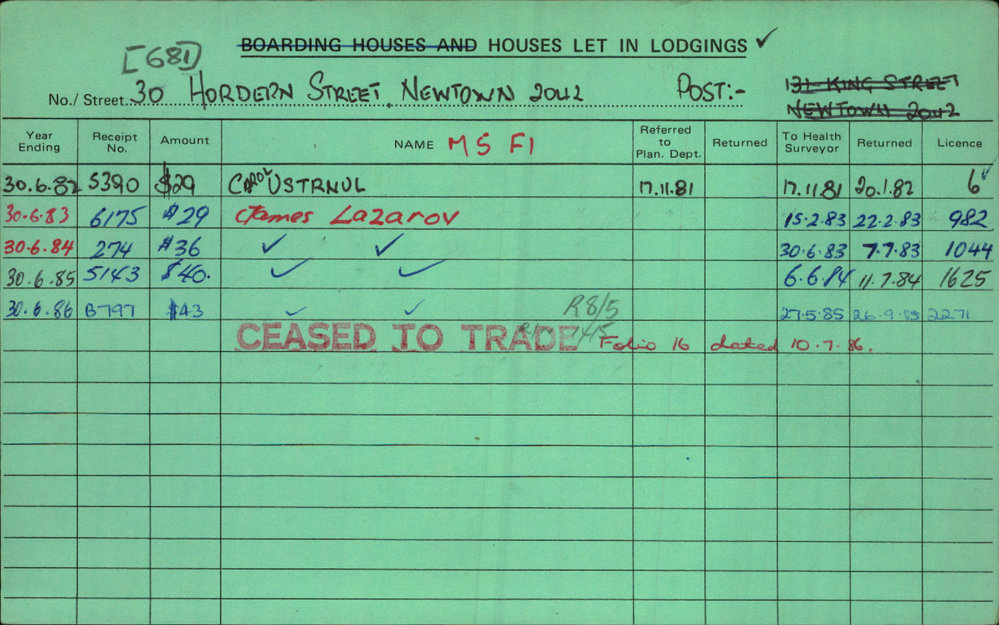 [681] BOARDING HOUSES AND HOUSES LET IN LODGINGS ✓
No./ Street 30 HORDERN STREET, NEWTOWN 2042 POST:- 131 KING STREET
NEWTOWN 2042
Year Ending Receipt No. Amount NAME MS F1 Referred to Plan. Dept. Returned To Health Surveyor Returned Licence
30.6.82 5390 $29 CAROL USTRNUL 17.11.81 17.11.81 20.1.82 6 ✓
30.6.83 6175 $29 James Lazarov 15.2.83 22.2.83 982
30.6.84 274 $36 ✓ ✓ 30.6.83 7.7.83 1044
30.6.85 5143 $40. ✓ ✓ 6.6.84 11.7.84 1625
30.6.86 B797 $43 ✓ ✓ R8/5 27.5.85 26.9.85 2271
CEASED TO TRADE Folio 16 dated 10.7.86.